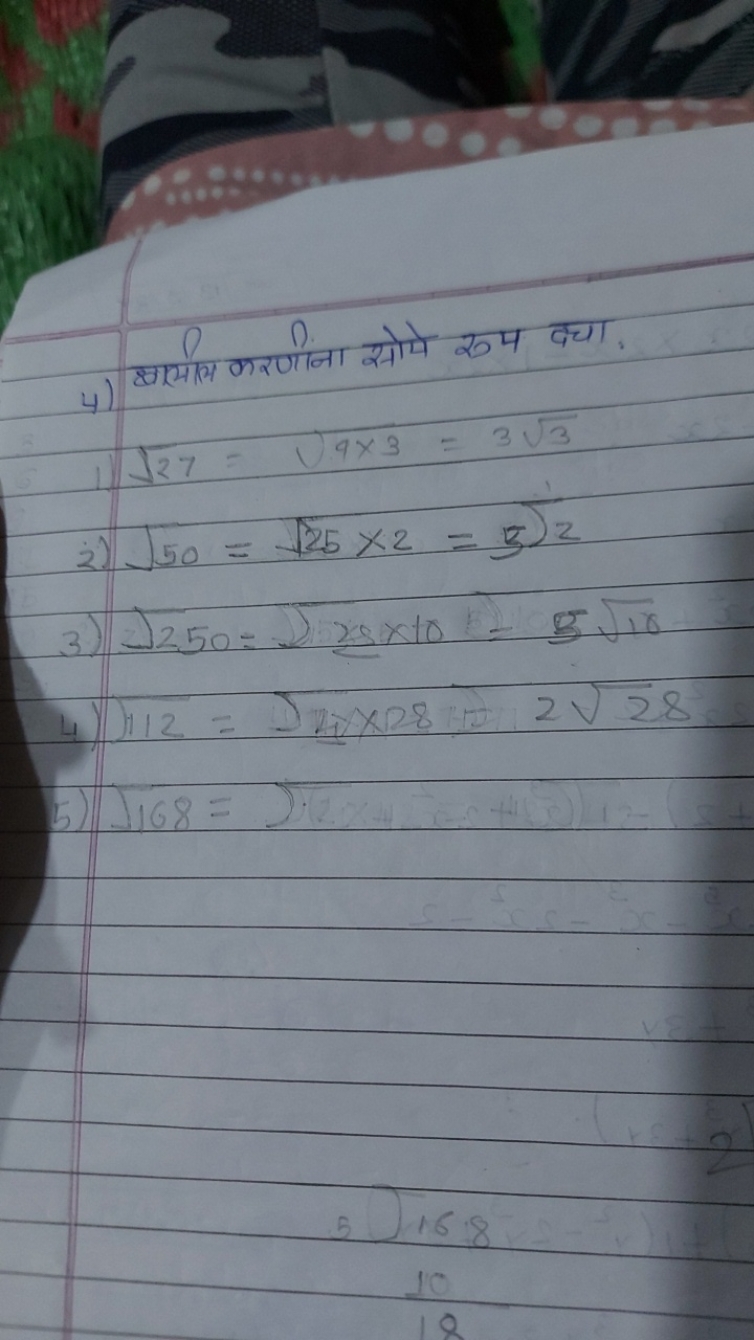 4) खालील करणींना सोपे रूप द्या.
1) √27 = √9×3 = 3√3
2) √50 = √25×2 = 5√2
3) √250 = √25×10 = 5√10
4) √112 = √4×28 = 2√28
5) √168 = √
5√168
10
18